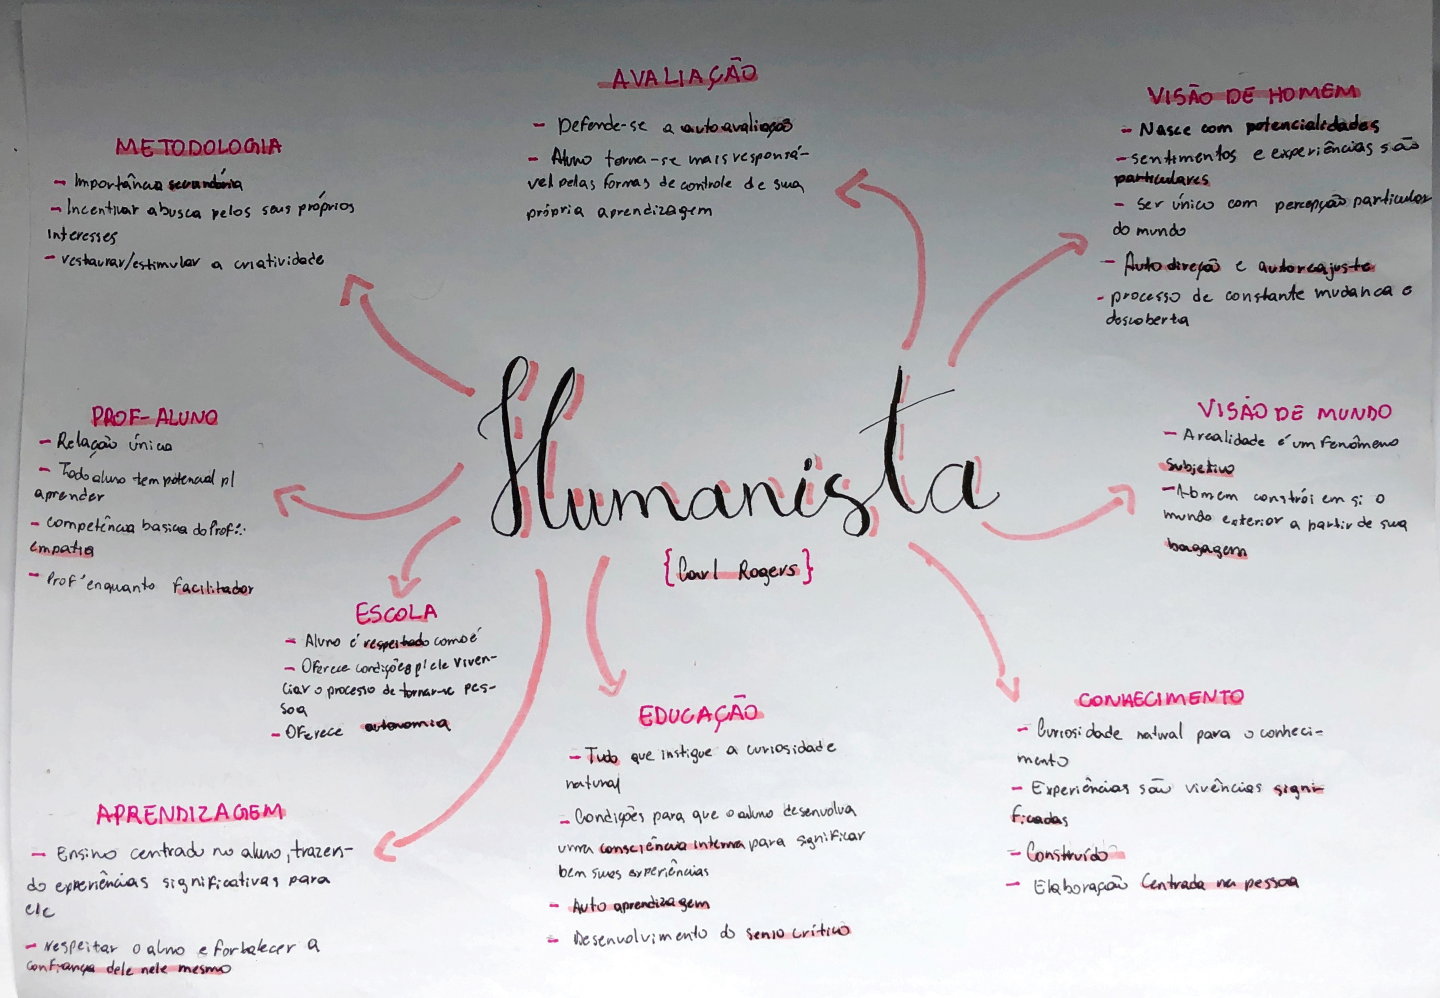 AVALIAÇÃO
- Defende-se a autoavaliação
- Aluno torna-se mais responsá-
vel pelas formas de controle de sua
própria aprendizagem
VISÃO DE HOMEM
- Nasce com potencialidades
- sentimentos e experiências são
particulares
- Ser único com percepção particular
do mundo
- Auto direção e autoreajuste
- processo de constante mudanca e
descoberta
METODOLOGIA
- Importância secundária
- Incentivar a busca pelos seus próprios
interesses
- restaurar/estimular a criatividade
PROF-ALUNO
- Relação única
- Todo aluno tem potencial p/
aprender
- competência basica do Prof.:
empatia
- Prof. enquanto facilitador
VISÃO DE MUNDO
- A realidade é um fenômeno
subjetivo
- Homem constrói em si o
mundo exterior a partir de sua
bagagem
Humanista
{Carl Rogers}
ESCOLA
- Aluno é respeitado como é
- Oferece condições p/ ele viven-
ciar o processo de tornar-se pes-
soa
- Oferece autonomia
EDUCAÇÃO
- Tudo que instigue a curiosidade
natural
- Condições para que o aluno desenvolva
uma consciência interna para significar
bem suas experiências
- Auto aprendizagem
- Desenvolvimento do senso crítico
CONHECIMENTO
- Curiosidade natural para o conheci-
mento
- Experiências são vivências signi-
ficadas
- Construído
- Elaboração Centrada na pessoa
APRENDIZAGEM
- Ensino centrado no aluno, trazen-
do experiências significativas para
ele
- Respeitar o alno e fortalecer a
confiança dele nele mesmo